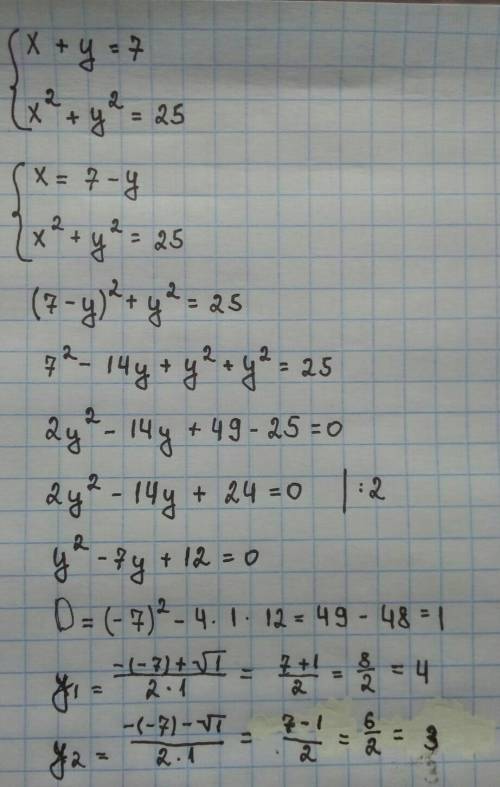 { x + y = 7
x² + y² = 25
{ x = 7 - y
x² + y² = 25
(7 - y)² + y² = 25
7² - 14y + y² + y² = 25
2y² - 14y + 49 - 25 = 0
2y² - 14y + 24 = 0 | : 2
y² - 7y + 12 = 0
D = (-7)² - 4 · 1 · 12 = 49 - 48 = 1
y₁ = (-(-7) + √1)/(2 · 1) = (7 + 1)/2 = 8/2 = 4
y₂ = (-(-7) - √1)/(2 · 1) = (7 - 1)/2 = 6/2 = 3